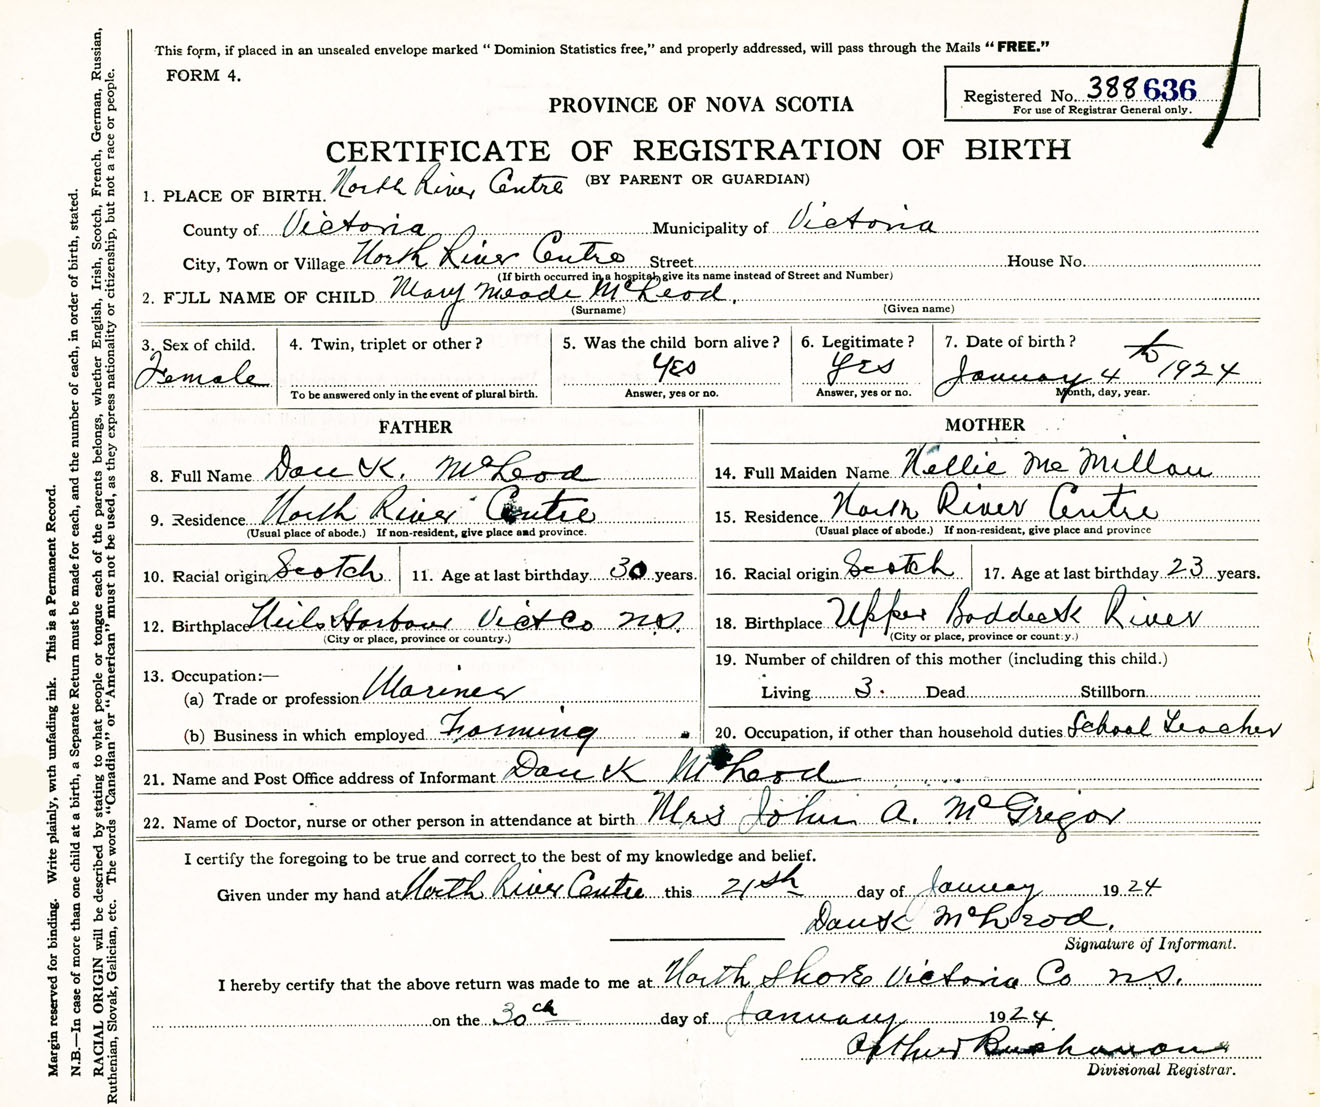 This form, if placed in an unsealed envelope marked “ Dominion Statistics free,” and properly addressed, will pass through the Mails “ FREE.”
FORM 4.
Registered No. 388636
For use of Registrar General only.
PROVINCE OF NOVA SCOTIA
CERTIFICATE OF REGISTRATION OF BIRTH
(BY PARENT OR GUARDIAN)
1. PLACE OF BIRTH. North River Centre
County of Victoria Municipality of Victoria
City, Town or Village North River Centre Street House No.
(If birth occurred in a hospital, give its name instead of Street and Number)
2. FULL NAME OF CHILD Mary Meade McLeod.
(Surname) (Given name)
3. Sex of child. 4. Twin, triplet or other ? 5. Was the child born alive ? 6. Legitimate ? 7. Date of birth ?
Female Yes Yes January 4th 1924
To be answered only in the event of plural birth. Answer, yes or no. Answer, yes or no. Month, day, year.
FATHER
8. Full Name Dan K. McLeod
9. Residence North River Centre
(Usual place of abode.) If non-resident, give place and province.
10. Racial origin Scotch 11. Age at last birthday 30 years.
12. Birthplace Neils Harbour Vict Co N.S.
(City or place, province or country.)
13. Occupation:—
(a) Trade or profession Mariner
(b) Business in which employed Farming
MOTHER
14. Full Maiden Name Nellie Mc Millan
15. Residence North River Centre
(Usual place of abode.) If non-resident, give place and province
16. Racial origin Scotch 17. Age at last birthday 23 years.
18. Birthplace Upper Baddeck River
(City or place, province or country.)
19. Number of children of this mother (including this child.)
Living 3. Dead Stillborn
20. Occupation, if other than household duties School Teacher
21. Name and Post Office address of Informant Dan K McLeod
22. Name of Doctor, nurse or other person in attendance at birth Mrs John A. McGregor
I certify the foregoing to be true and correct to the best of my knowledge and belief.
Given under my hand at North River Centre this 21sh day of January 1924
Dan K McLeod.
Signature of Informant.
I hereby certify that the above return was made to me at North Shore Victoria Co N.S.
on the 30th day of January 1924
Arthur Buchanan
Divisional Registrar.
Margin reserved for binding. Write plainly, with unfading ink. This is a Permanent Record.
N.B.—In case of more than one child at a birth, a Separate Return must be made for each, and the number of each, in order of birth, stated.
RACIAL ORIGIN will be described by stating to what people or tongue each of the parents belongs, whether English, Irish, Scotch, French, German, Russian,
Ruthenian, Slovak, Galician, etc. The words “Canadian” or “American” must not be used, as they express nationality or citizenship, but not a race or people.